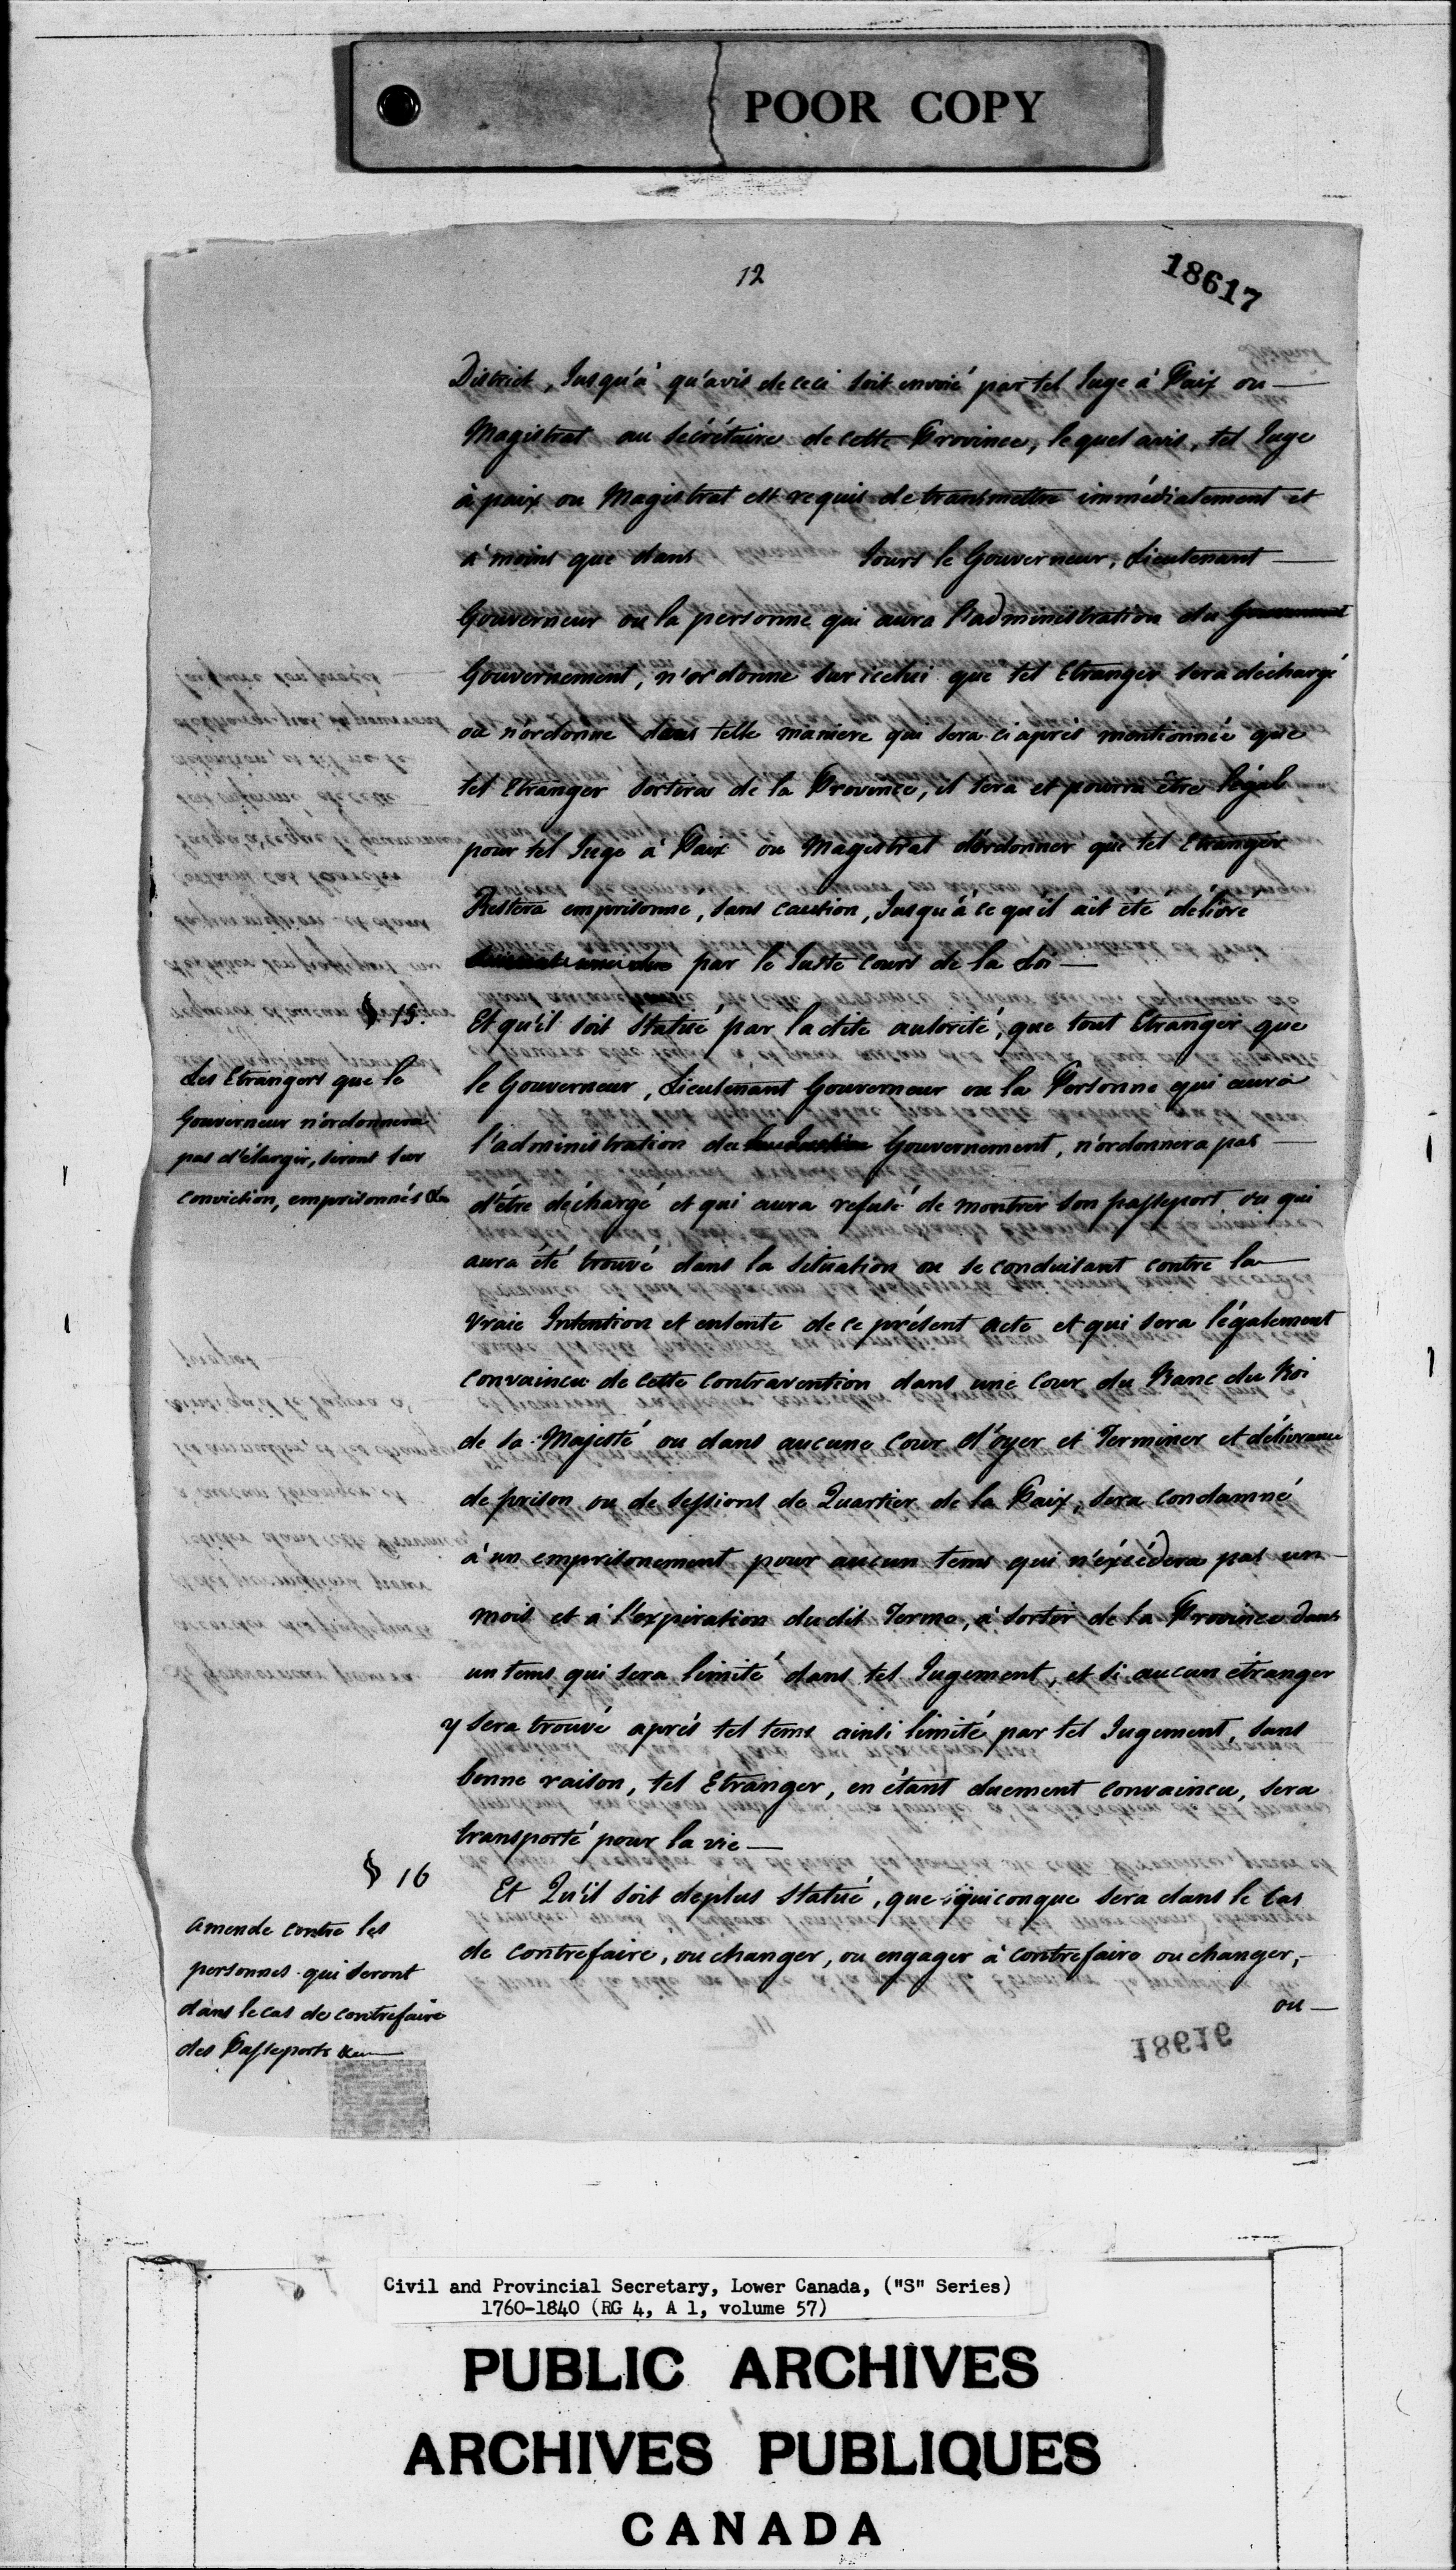 POOR COPY
12
18617
District, Jusqu'à qu'avis de ceci soit envoié par tel Juge à Paix ou —
Magistrat au Secrétaire de cette Province, lequel avis, tel Juge
à paix ou Magistrat est requis de transmettre immédiatement et
à moins que dans Jours le Gouverneur, Lieutenant —
Gouverneur ou la personne qui aura l'administration du Gouvernement
Gouvernement, n'ordonne sur icelui que tel Etranger sera déchargé
ou n'ordonne dans telle maniere qui sera ci après mentionnée que
tel Etranger sortira de la Province, il sera et pourra être légal
pour tel Juge à Paix ou Magistrat d'ordonner que tel Etranger
Restera emprisonné, sans caution, Jusqu'à ce qu'il ait été délivré
par le Juste cours de la Loi —
§ 15.
Les Etrangers que le
Gouverneur n'ordonnera
pas d'élargir, seront sur
conviction, emprisonnés &a
Et qu'il soit statué par la dite autorité, que tout Etranger que
le Gouverneur, Lieutenant Gouverneur ou la Personne qui aura
l'administration du Gouvernement, n'ordonnera pas —
d'être déchargé et qui aura refusé de montrer son passeport ou qui
aura été trouvé dans la situation ou se conduisant contre la —
vraie Intention et entente de ce présent acte et qui sera légalement
convaincu de cette contravention dans une Cour du Banc du Roi
de sa Majesté ou dans aucune Cour d'oyer et Terminer et délivrance
de prison ou de Sessions de Quartier de la Paix, sera condamné
à un emprisonement pour aucun tems qui n'éxcédera pas un —
mois et à l'expiration dudit Terme, à sortir de la Province dans
un tems qui sera limité dans tel Jugement, et si aucun étranger
y sera trouvé après tel tems ainsi limité par tel Jugement, sans
bonne raison, tel Etranger, en étant duement convaincu, sera
transporté pour la vie —
§ 16
amende contre les
personnes qui seront
dans le cas de contrefaire
des Passeports &a —
Et Qu'il soit deplus statué, que quiconque sera dans le Cas
de contrefaire, ou changer, ou engager à contrefaire ou changer, -
ou —
18616
Civil and Provincial Secretary, Lower Canada, ("S" Series)
1760-1840 (RG 4, A 1, volume 57)
PUBLIC ARCHIVES
ARCHIVES PUBLIQUES
CANADA